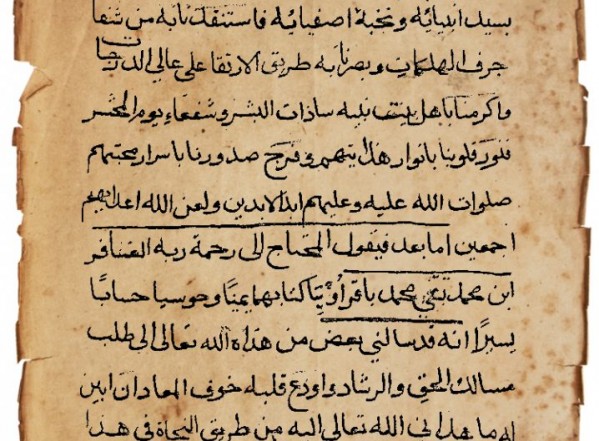 بسيد انبيائه و نخبة اصفيائه فاستنقذنا به من شفا
جرف الهلكات و بصرنا به طريق الارتقا على عالى الدرجات
واكرمنا باهل بيت نبيه سادات البشر و شفعاء يوم المحشر
فنور قلوبنا بانوار هدايتهم و فرج صدورنا باسرار محبتهم
صلوات الله عليه وعليهم ابد الابدين ولعن الله اعدائهم
اجمعين اما بعد فيقول المحتاج الى رحمة ربه الغافر
ابن محمد تقى محمد باقر اوتيا كتابهما يمينا و حوسبا حسابا
يسيرا انه قد سالنى بعض من هداه الله تعالى الى طلب
مسالك الحق والرشاد و اودع قلبه خوف المعاد ان ابين
له ما هدانى الله تعالى اليه من طريق النجاة فى هذا